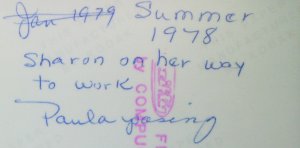 Jan 1979 Summer
1978
Sharon on her way
to work
Paula posing
BY COMPU